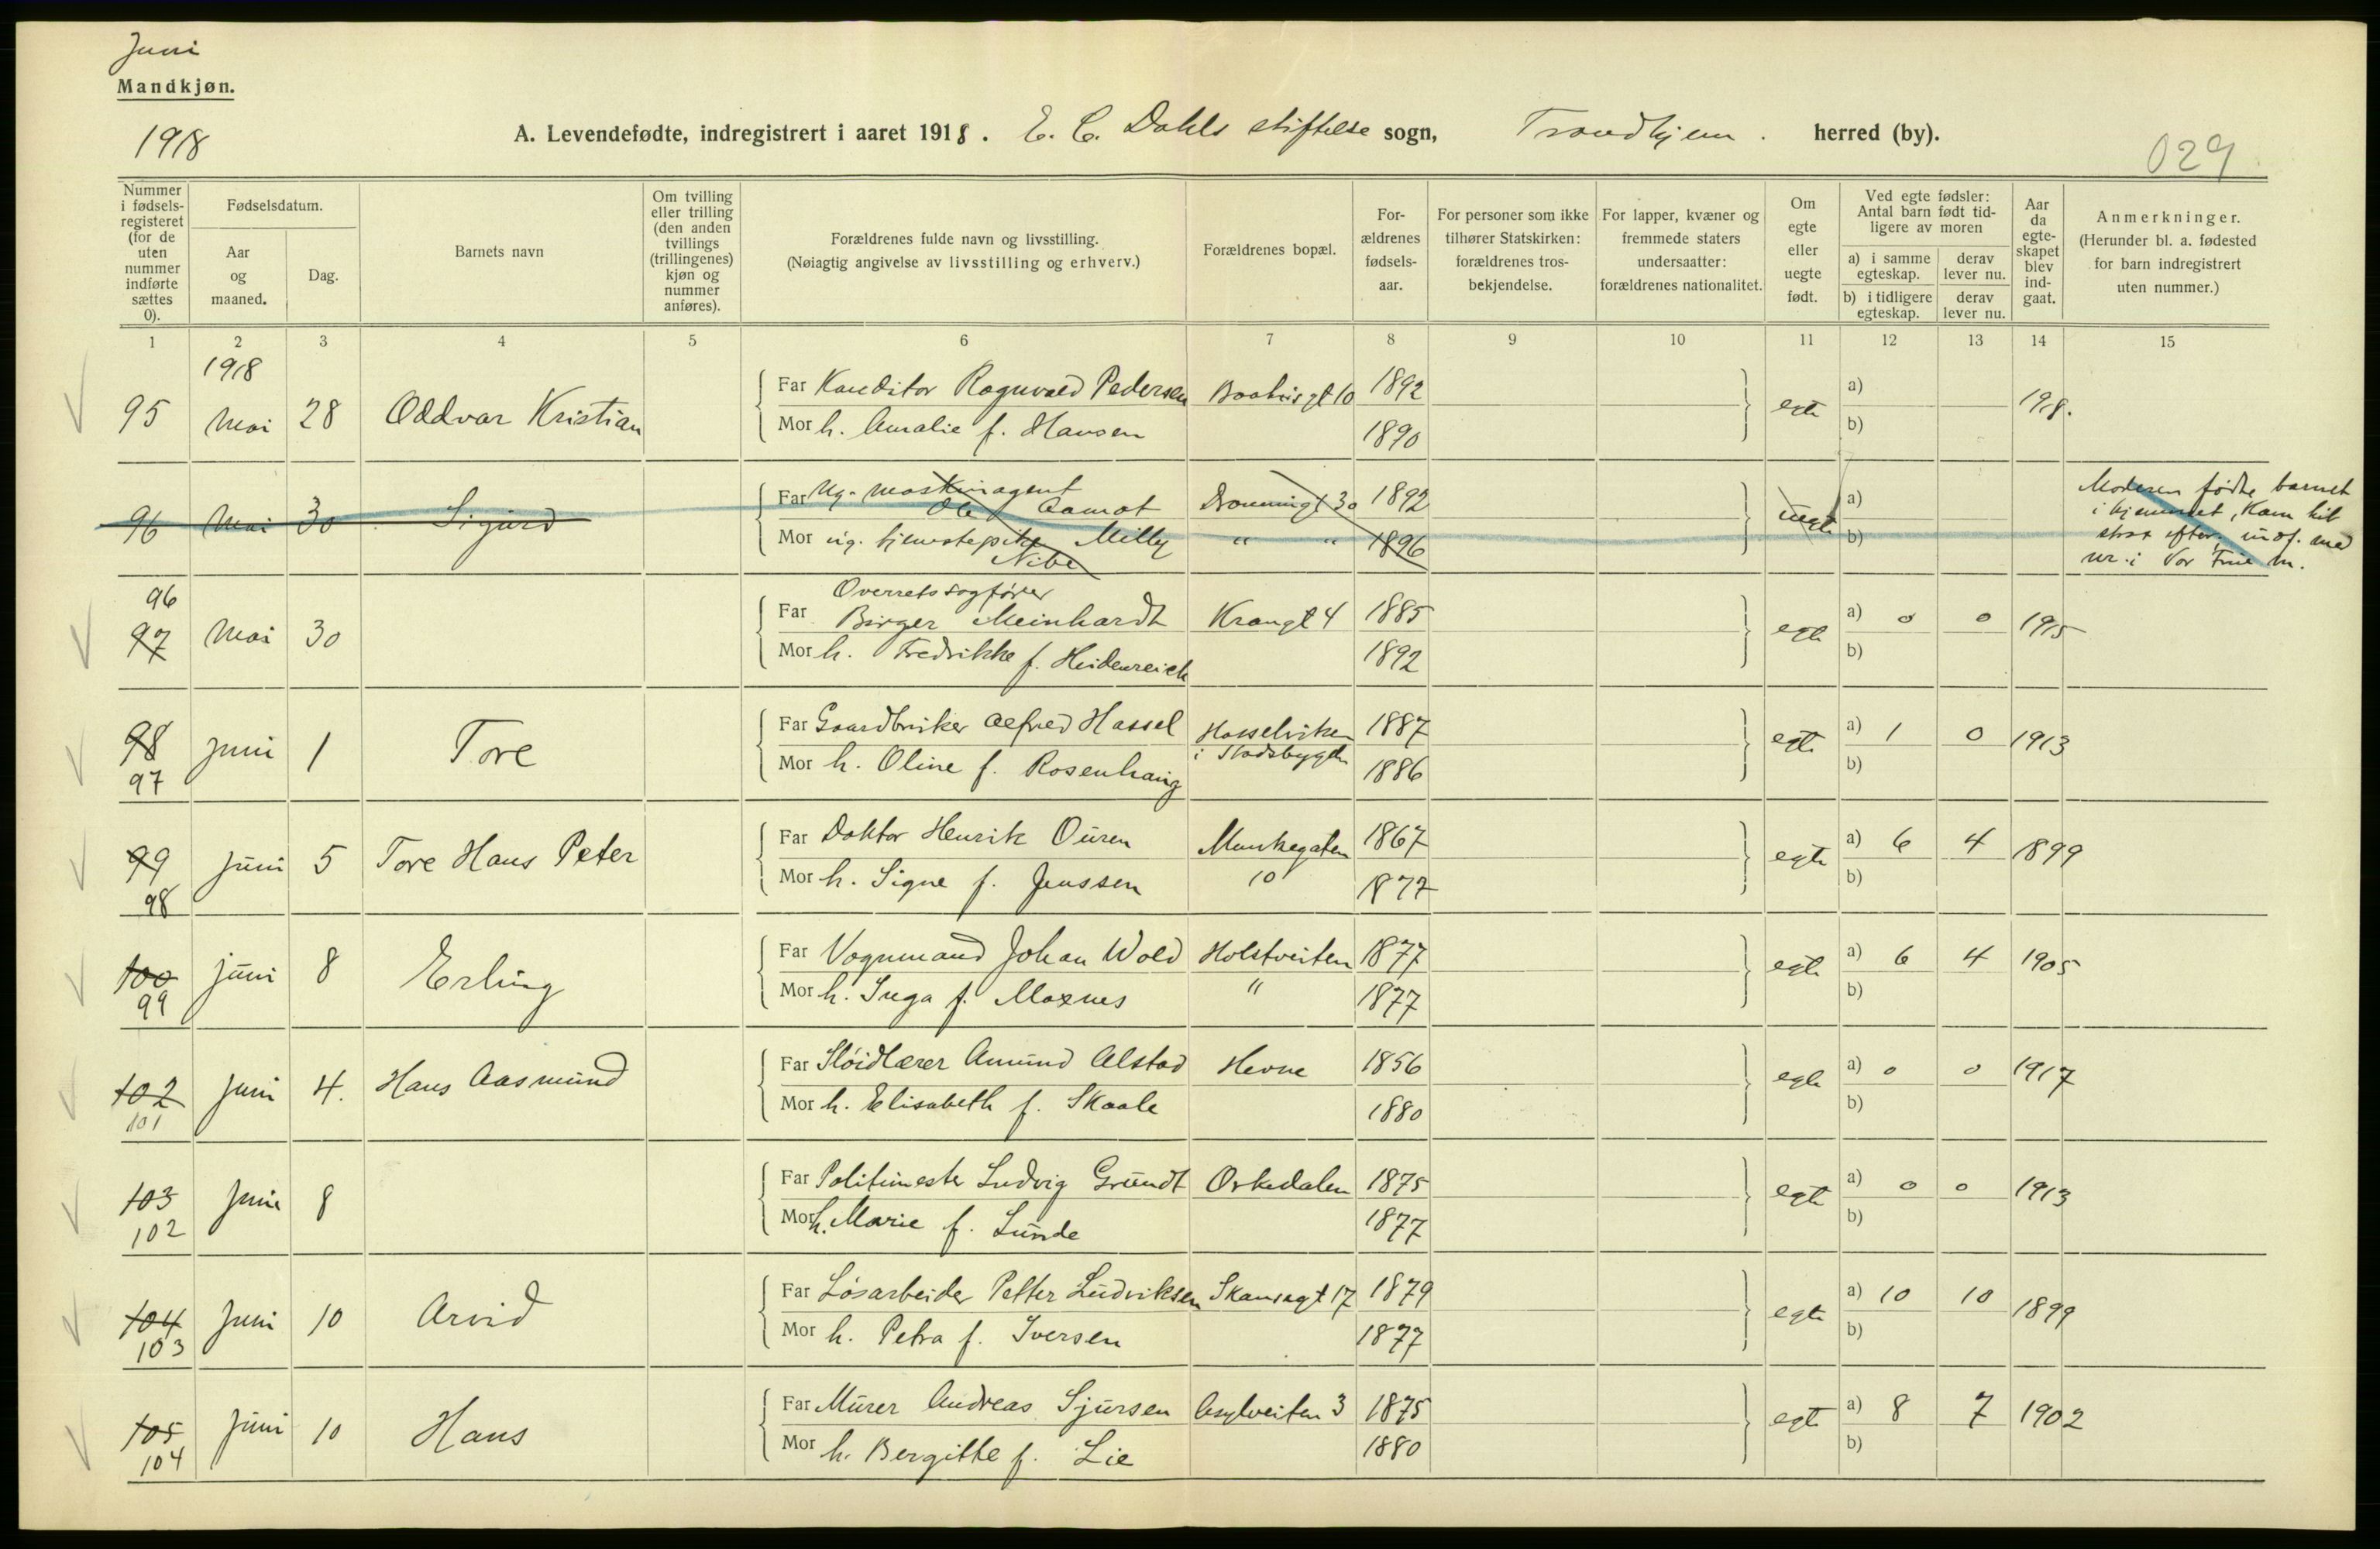 Juni
Mandkjøn.
1918
A. Levendefødte, indregistrert i aaret 1918. E. C. Dahls stiftelse sogn, Trondhjem. herred (by).
029
Nummer i fødsels-registeret (for de uten nummer indførte sættes 0).
Fødselsdatum.
Aar og maaned.
Dag.
Barnets navn
Om tvilling eller trilling (den anden tvillings (trillingenes) kjøn og nummer anføres).
Forældrenes fulde navn og livsstilling. (Nøiagtig angivelse av livsstilling og erhverv.)
Forældrenes bopæl.
For-ældrenes fødsels-aar.
For personer som ikke tilhører Statskirken: forældrenes tros-bekjendelse.
For lapper, kvæner og fremmede staters undersaatter: forældrenes nationalitet.
Om egte eller uegte født.
Ved egte fødsler: Antal barn født tid-ligere av moren
a) i samme egteskap. derav lever nu.
b) i tidligere egteskap. derav lever nu.
Aar da egte-skapet blev ind-gaat.
Anmerkninger. (Herunder bl. a. fødested for barn indregistrert uten nummer.)
1 2 3 4 5 6 7 8 9 10 11 12 13 14 15
1918
95 Mai 28 Oddvar Kristian Far Konditor Ragnvald Pedersen 1892 egte a) 1918.
Mor h. Amalie f. Hansen 1890 b)
96 Mai 30 Sigurd Far Ug. maskinagent Ole Aamot Dronningt 30 1892 uegte a)
Mor ug. tjenestepike Milly Nibe " " 1896 b)
Moderen fødte barnet
i hjemmet, kom hit
strax efter, indf. med
nr. i Vor Frue m.
96
97 Mai 30 Far Overretssagfører Birger Meinhardt Krangt 4 1885 egte a) 0 0 1915
Mor h. Fredrikke f. Heidenreich 1892 b)
98 Juni 1 Tore Far Gaardbruker Alfred Hassel Hasselviken i Stadsbygden 1887 egte a) 1 0 1913
97 Mor h. Oline f. Rosenhaug 1886 b)
99 Juni 5 Tore Hans Peter Far Doktor Henrik Ouren Munkegaten 10 1867 egte a) 6 4 1899
98 Mor h. Signe f. Jenssen 1877 b)
100 Juni 8 Erling Far Vognmand Johan Wold Holstveiten 1877 egte a) 6 4 1905
99 Mor h. Inga f. Moxnes " 1877 b)
102 Juni 4. Hans Aasmund Far Sløidlærer Amund Alstad Hevne 1856 egte a) 0 0 1917
101 Mor h. Elisabeth f. Skaale 1880 b)
103 Juni 8 Far Politimester Ludvig Grundt Orkedalen 1875 egte a) 0 0 1913
102 Mor h. Marie f. Lunde 1877 b)
104 Juni 10 Arvid Far Løsarbeider Petter Ludviksen Skansegt 17 1879 egte a) 10 10 1899
103 Mor h. Petra f. Iversen 1877 b)
105 Juni 10 Hans Far Murer Andreas Sjursen Asylveiten 3 1875 egte a) 8 7 1902
104 Mor h. Bergitte f. Lie 1880 b)